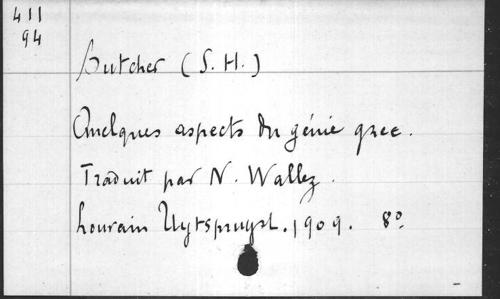 411
94
Butcher (S. H.)
Quelques aspects du génie grec.
Traduit par N. Wallez.
Louvain Uytspruyst. 1909. 8º.